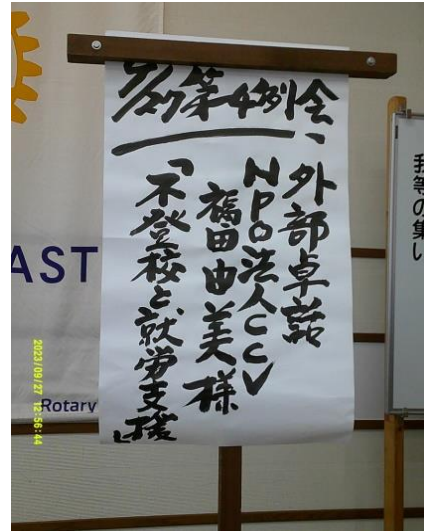 9/27第4例会、
外部卓話
NPO法人CCV
福田由美様
「不登校と就労支援」
我等の集い
AST
Rotary
2023/09/27 12:56:44